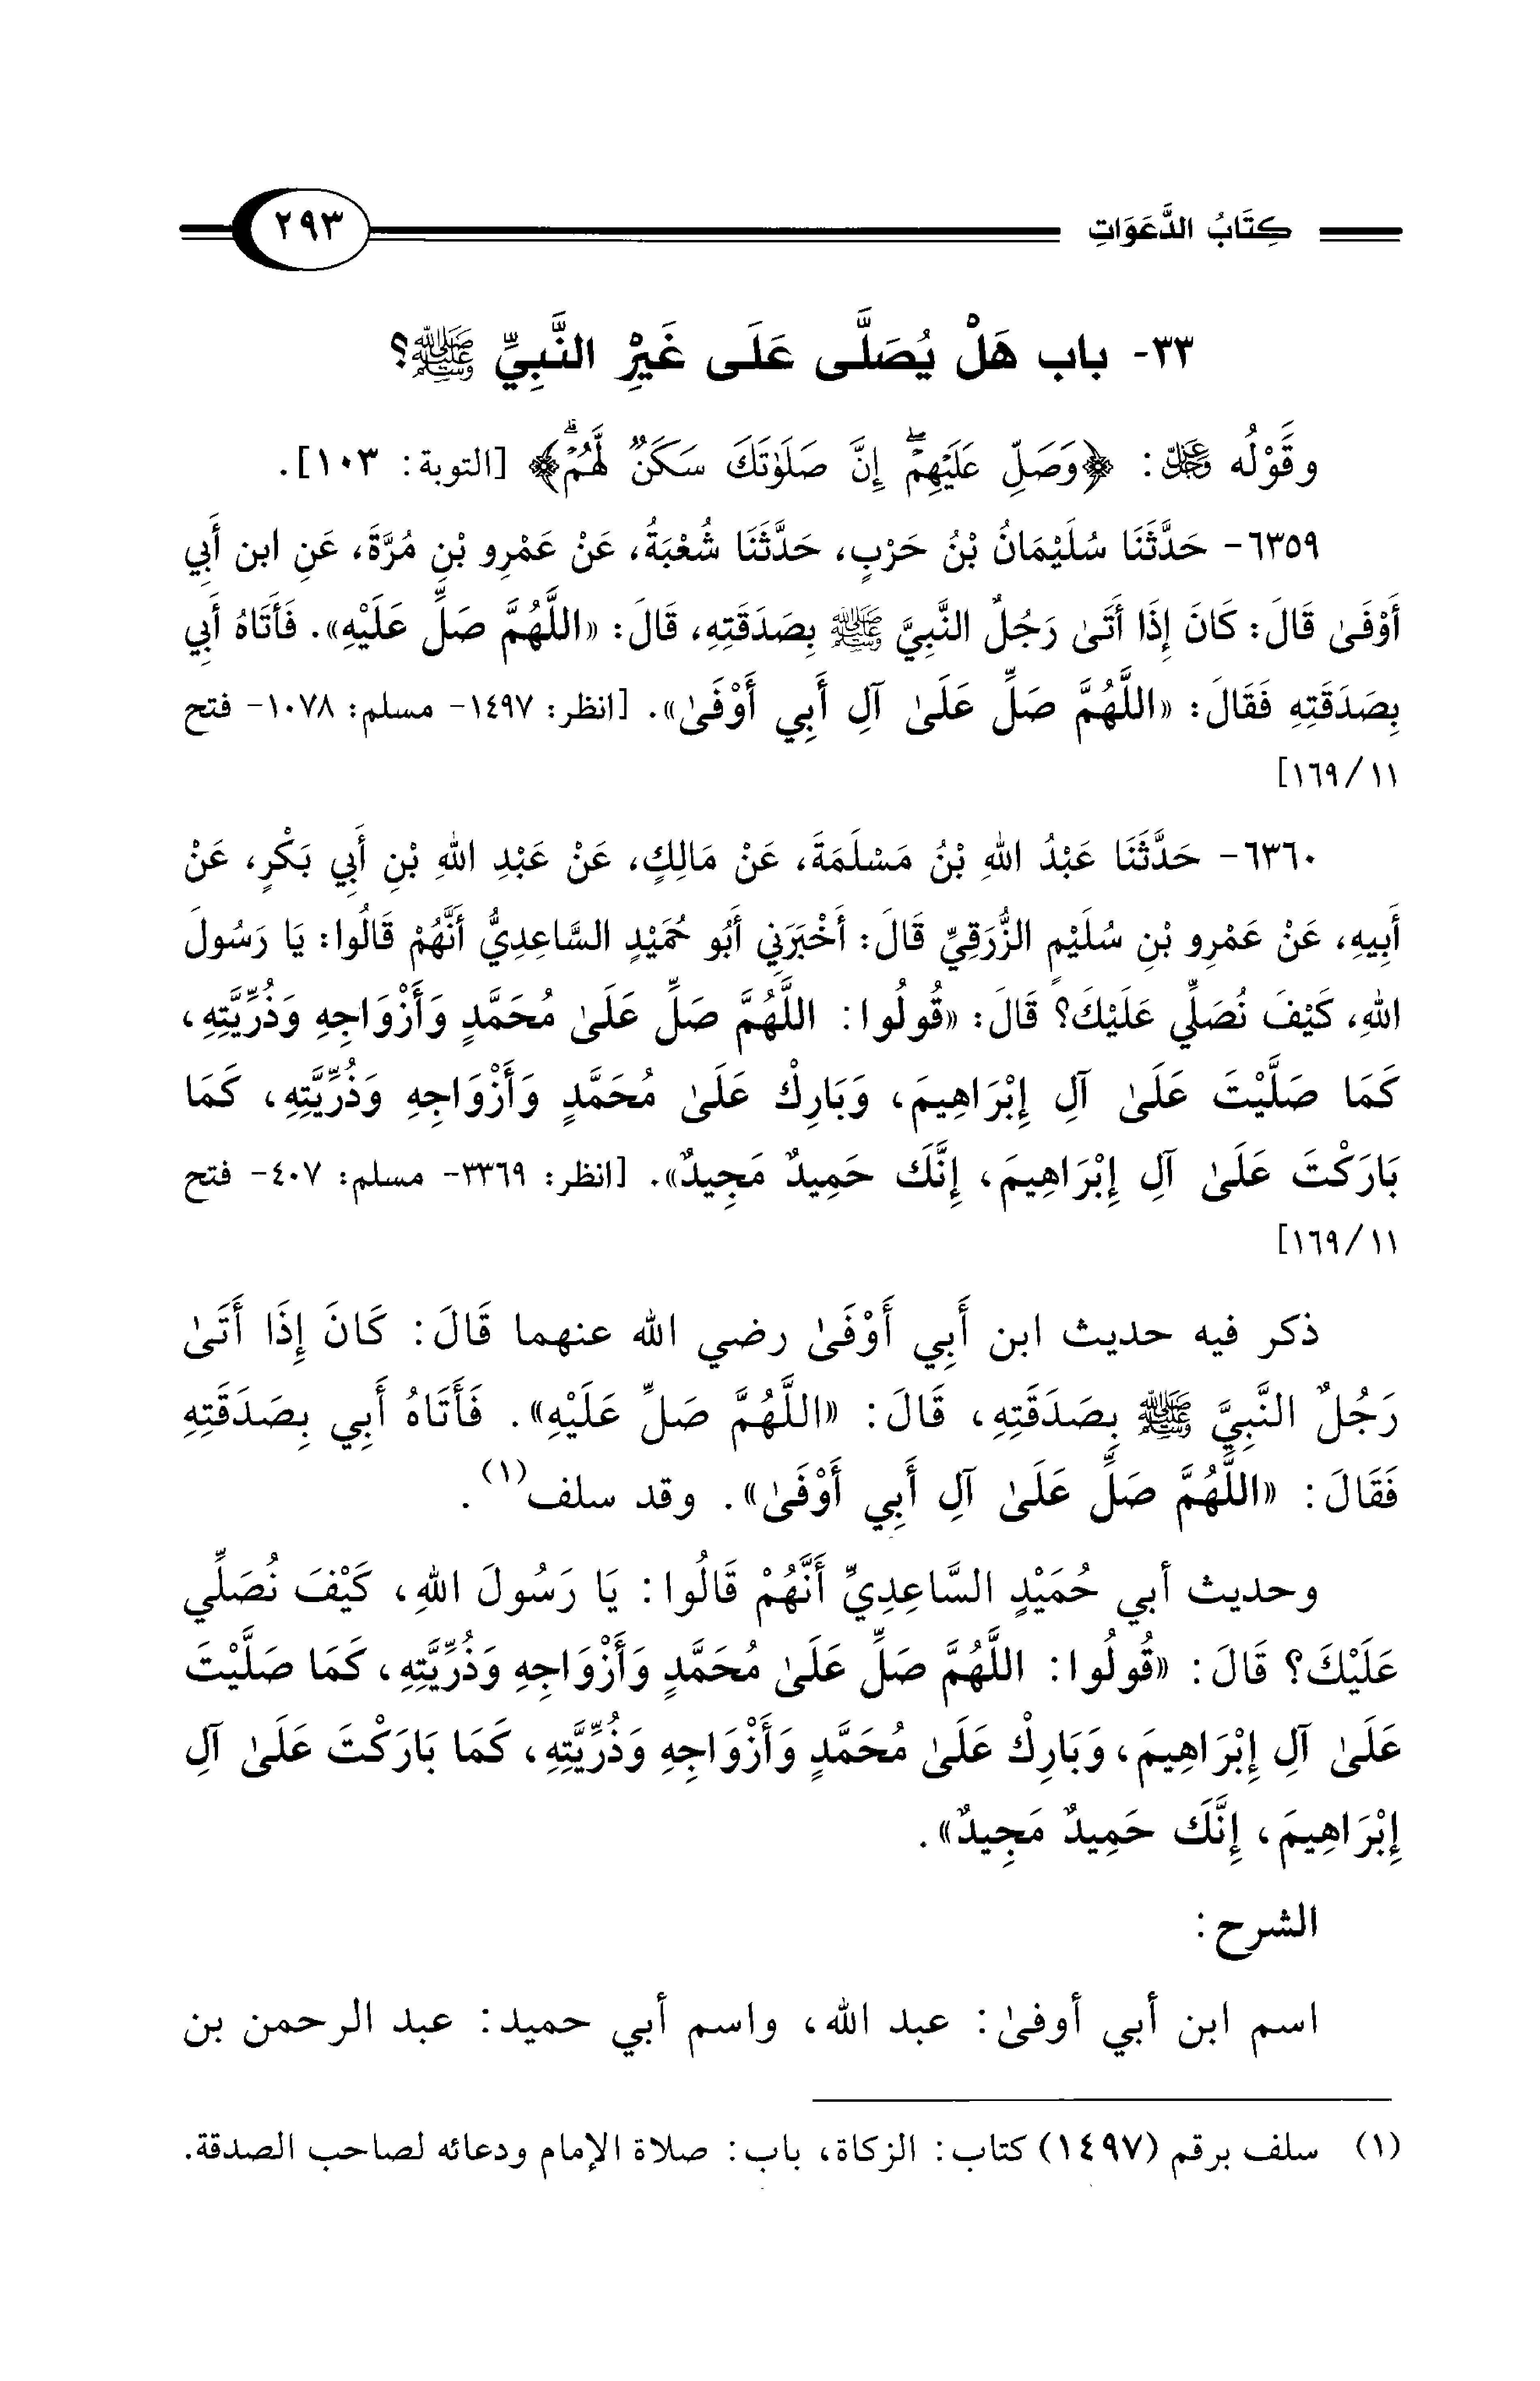 كِتَابُ الدَّعَوَاتِ ٢٩٣
٣٣- باب هَلْ يُصَلَّى عَلَى غَيْرِ النَّبِيِّ ﷺ؟
وقَوْلُه ﷿: ﴿وَصَلِّ عَلَيْهِمْۖ إِنَّ صَلَوٰتَكَ سَكَنٌ لَّهُمْۗ﴾ [التوبة: ١٠٣].
٦٣٥٩- حَدَّثَنَا سُلَيْمَانُ بْنُ حَرْبٍ، حَدَّثَنَا شُعْبَةُ، عَنْ عَمْرِو بْنِ مُرَّةَ، عَنِ ابن أَبِي
أَوْفَىٰ قَالَ: كَانَ إِذَا أَتَىٰ رَجُلٌ النَّبِيَّ ﷺ بِصَدَقَتِهِ، قَالَ: «اللَّهُمَّ صَلِّ عَلَيْهِ». فَأَتَاهُ أَبِي
بِصَدَقَتِهِ فَقَالَ: «اللَّهُمَّ صَلِّ عَلَىٰ آلِ أَبِي أَوْفَىٰ». [انظر: ١٤٩٧- مسلم: ١٠٧٨- فتح
١١/١٦٩]
٦٣٦٠- حَدَّثَنَا عَبْدُ اللهِ بْنُ مَسْلَمَةَ، عَنْ مَالِكٍ، عَنْ عَبْدِ اللهِ بْنِ أَبِي بَكْرٍ، عَنْ
أَبِيهِ، عَنْ عَمْرِو بْنِ سُلَيْمٍ الزُّرَقِيِّ قَالَ: أَخْبَرَنِي أَبُو حُمَيْدٍ السَّاعِدِيُّ أَنَّهُمْ قَالُوا: يَا رَسُولَ
اللهِ، كَيْفَ نُصَلِّي عَلَيْكَ؟ قَالَ: «قُولُوا: اللَّهُمَّ صَلِّ عَلَىٰ مُحَمَّدٍ وَأَزْوَاجِهِ وَذُرِّيَّتِهِ،
كَمَا صَلَّيْتَ عَلَىٰ آلِ إِبْرَاهِيمَ، وَبَارِكْ عَلَىٰ مُحَمَّدٍ وَأَزْوَاجِهِ وَذُرِّيَّتِهِ، كَمَا
بَارَكْتَ عَلَىٰ آلِ إِبْرَاهِيمَ، إِنَّكَ حَمِيدٌ مَجِيدٌ». [انظر: ٣٣٦٩- مسلم: ٤٠٧- فتح
١١/١٦٩]
ذكر فيه حديث ابن أَبِي أَوْفَىٰ رضي الله عنهما قَالَ: كَانَ إِذَا أَتَىٰ
رَجُلٌ النَّبِيَّ ﷺ بِصَدَقَتِهِ، قَالَ: «اللَّهُمَّ صَلِّ عَلَيْهِ». فَأَتَاهُ أَبِي بِصَدَقَتِهِ
فَقَالَ: «اللَّهُمَّ صَلِّ عَلَىٰ آلِ أَبِي أَوْفَىٰ». وقد سلف(١).
وحديث أبي حُمَيْدٍ السَّاعِدِيِّ أَنَّهُمْ قَالُوا: يَا رَسُولَ اللهِ، كَيْفَ نُصَلِّي
عَلَيْكَ؟ قَالَ: «قُولُوا: اللَّهُمَّ صَلِّ عَلَىٰ مُحَمَّدٍ وَأَزْوَاجِهِ وَذُرِّيَّتِهِ، كَمَا صَلَّيْتَ
عَلَىٰ آلِ إِبْرَاهِيمَ، وَبَارِكْ عَلَىٰ مُحَمَّدٍ وَأَزْوَاجِهِ وَذُرِّيَّتِهِ، كَمَا بَارَكْتَ عَلَىٰ آلِ
إِبْرَاهِيمَ، إِنَّكَ حَمِيدٌ مَجِيدٌ».
الشرح:
اسم ابن أبي أوفىٰ: عبد الله، واسم أبي حميد: عبد الرحمن بن
(١) سلف برقم (١٤٩٧) كتاب: الزكاة، باب: صلاة الإمام ودعائه لصاحب الصدقة.